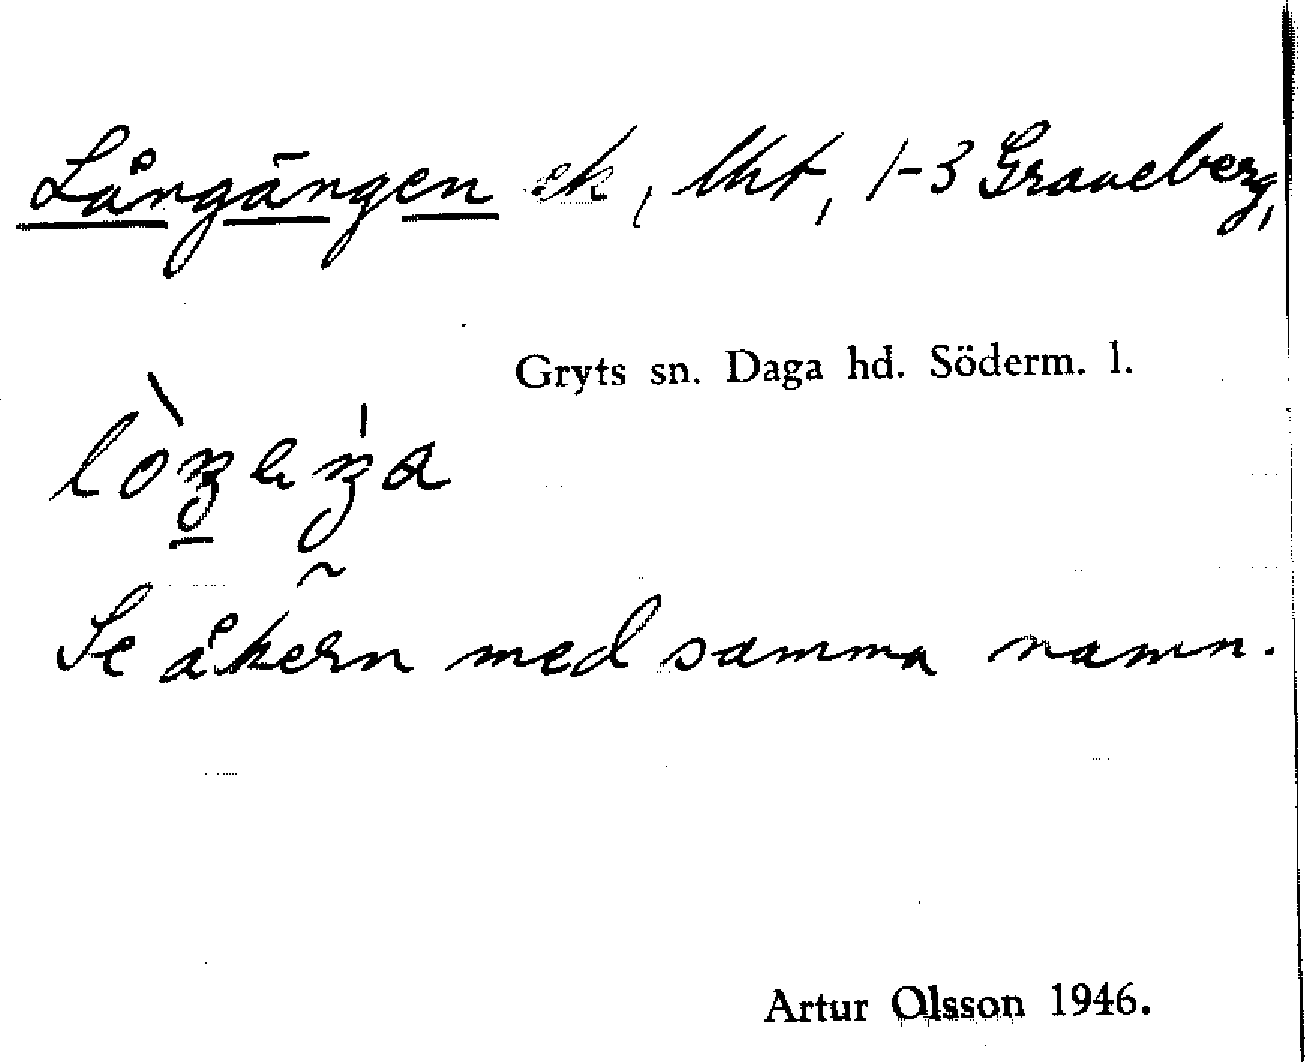 Långängen ek, lht, 1-3 Graneberg,
Gryts sn. Daga hd. Söderm. l.
Se åkern med samma namn.
Artur Olsson 1946.